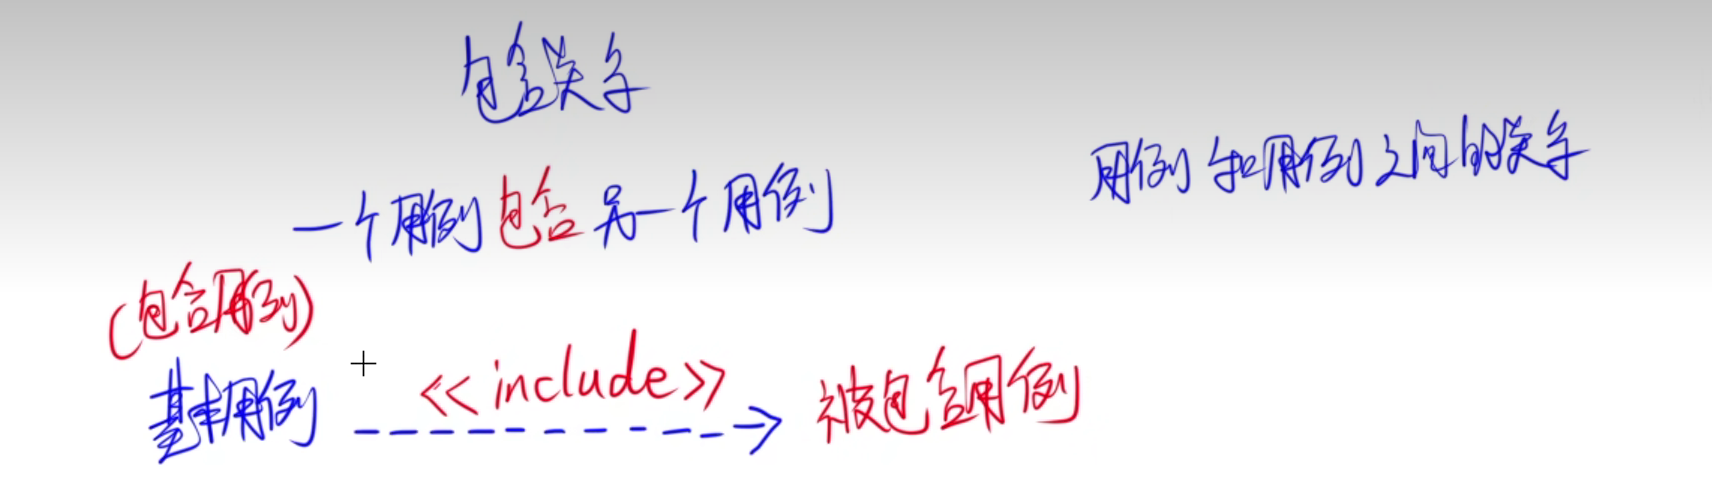 包含关系
用例和用例之间的关系
一个用例包含另一个用例
(包含用例)
<<include>>
基本用例 被包含用例